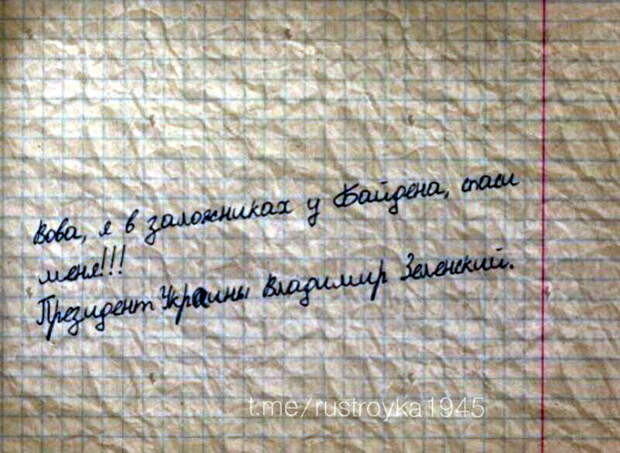 Вова, я в заложниках у Байдена, спаси
меня!!!
Президент Украины Владимир Зеленский.
t.me/rustroyka1945